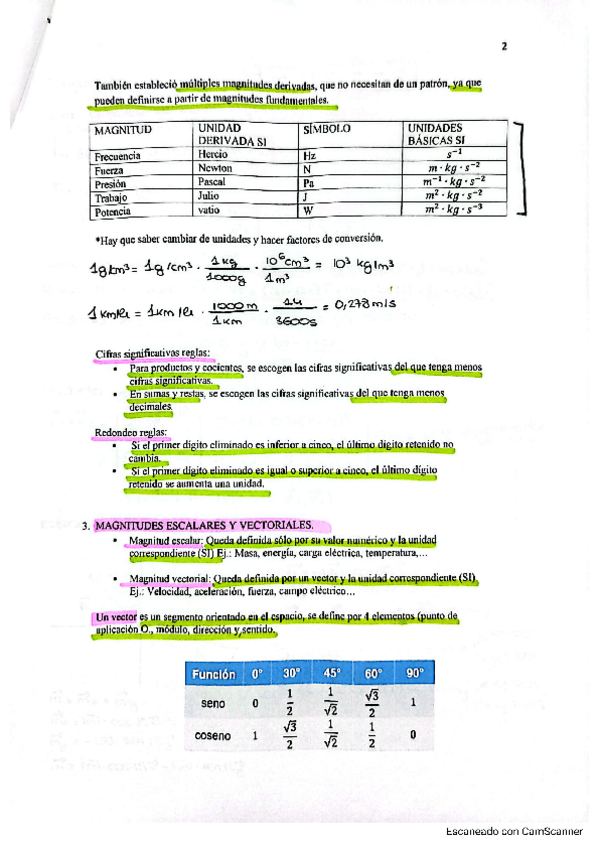 2
También estableció múltiples magnitudes derivadas, que no necesitan de un patrón, ya que
pueden definirse a partir de magnitudes fundamentales.
MAGNITUD UNIDAD DERIVADA SI SÍMBOLO UNIDADES BÁSICAS SI
Frecuencia Hercio Hz s⁻¹
Fuerza Newton N m · kg · s⁻²
Presión Pascal Pa m⁻¹ · kg · s⁻²
Trabajo Julio J m² · kg · s⁻²
Potencia vatio W m² · kg · s⁻³
*Hay que saber cambiar de unidades y hacer factores de conversión.
1g/cm³ = 1g/cm³ · 1kg/1000g · 10⁶cm³/1m³ = 10³ kg/m³
1km/h = 1km/h · 1000m/1km · 1h/3600s = 0,278m/s
Cifras significativas reglas:
• Para productos y cocientes, se escogen las cifras significativas del que tenga menos
cifras significativas.
• En sumas y restas, se escogen las cifras significativas del que tenga menos
decimales.
Redondeo reglas:
• Si el primer dígito eliminado es inferior a cinco, el último dígito retenido no
cambia.
• Si el primer dígito eliminado es igual o superior a cinco, el último dígito
retenido se aumenta una unidad.
3. MAGNITUDES ESCALARES Y VECTORIALES.
• Magnitud escalar: Queda definida sólo por su valor numérico y la unidad
correspondiente (SI) Ej.: Masa, energía, carga eléctrica, temperatura,…
• Magnitud vectorial: Queda definida por un vector y la unidad correspondiente (SI)
Ej.: Velocidad, aceleración, fuerza, campo eléctrico…
Un vector es un segmento orientado en el espacio, se define por 4 elementos (punto de
aplicación O., módulo, dirección y sentido.
Función 0° 30° 45° 60° 90°
seno 0 1/2 1/√2 √3/2 1
coseno 1 √3/2 1/√2 1/2 0
Escaneado con CamScanner